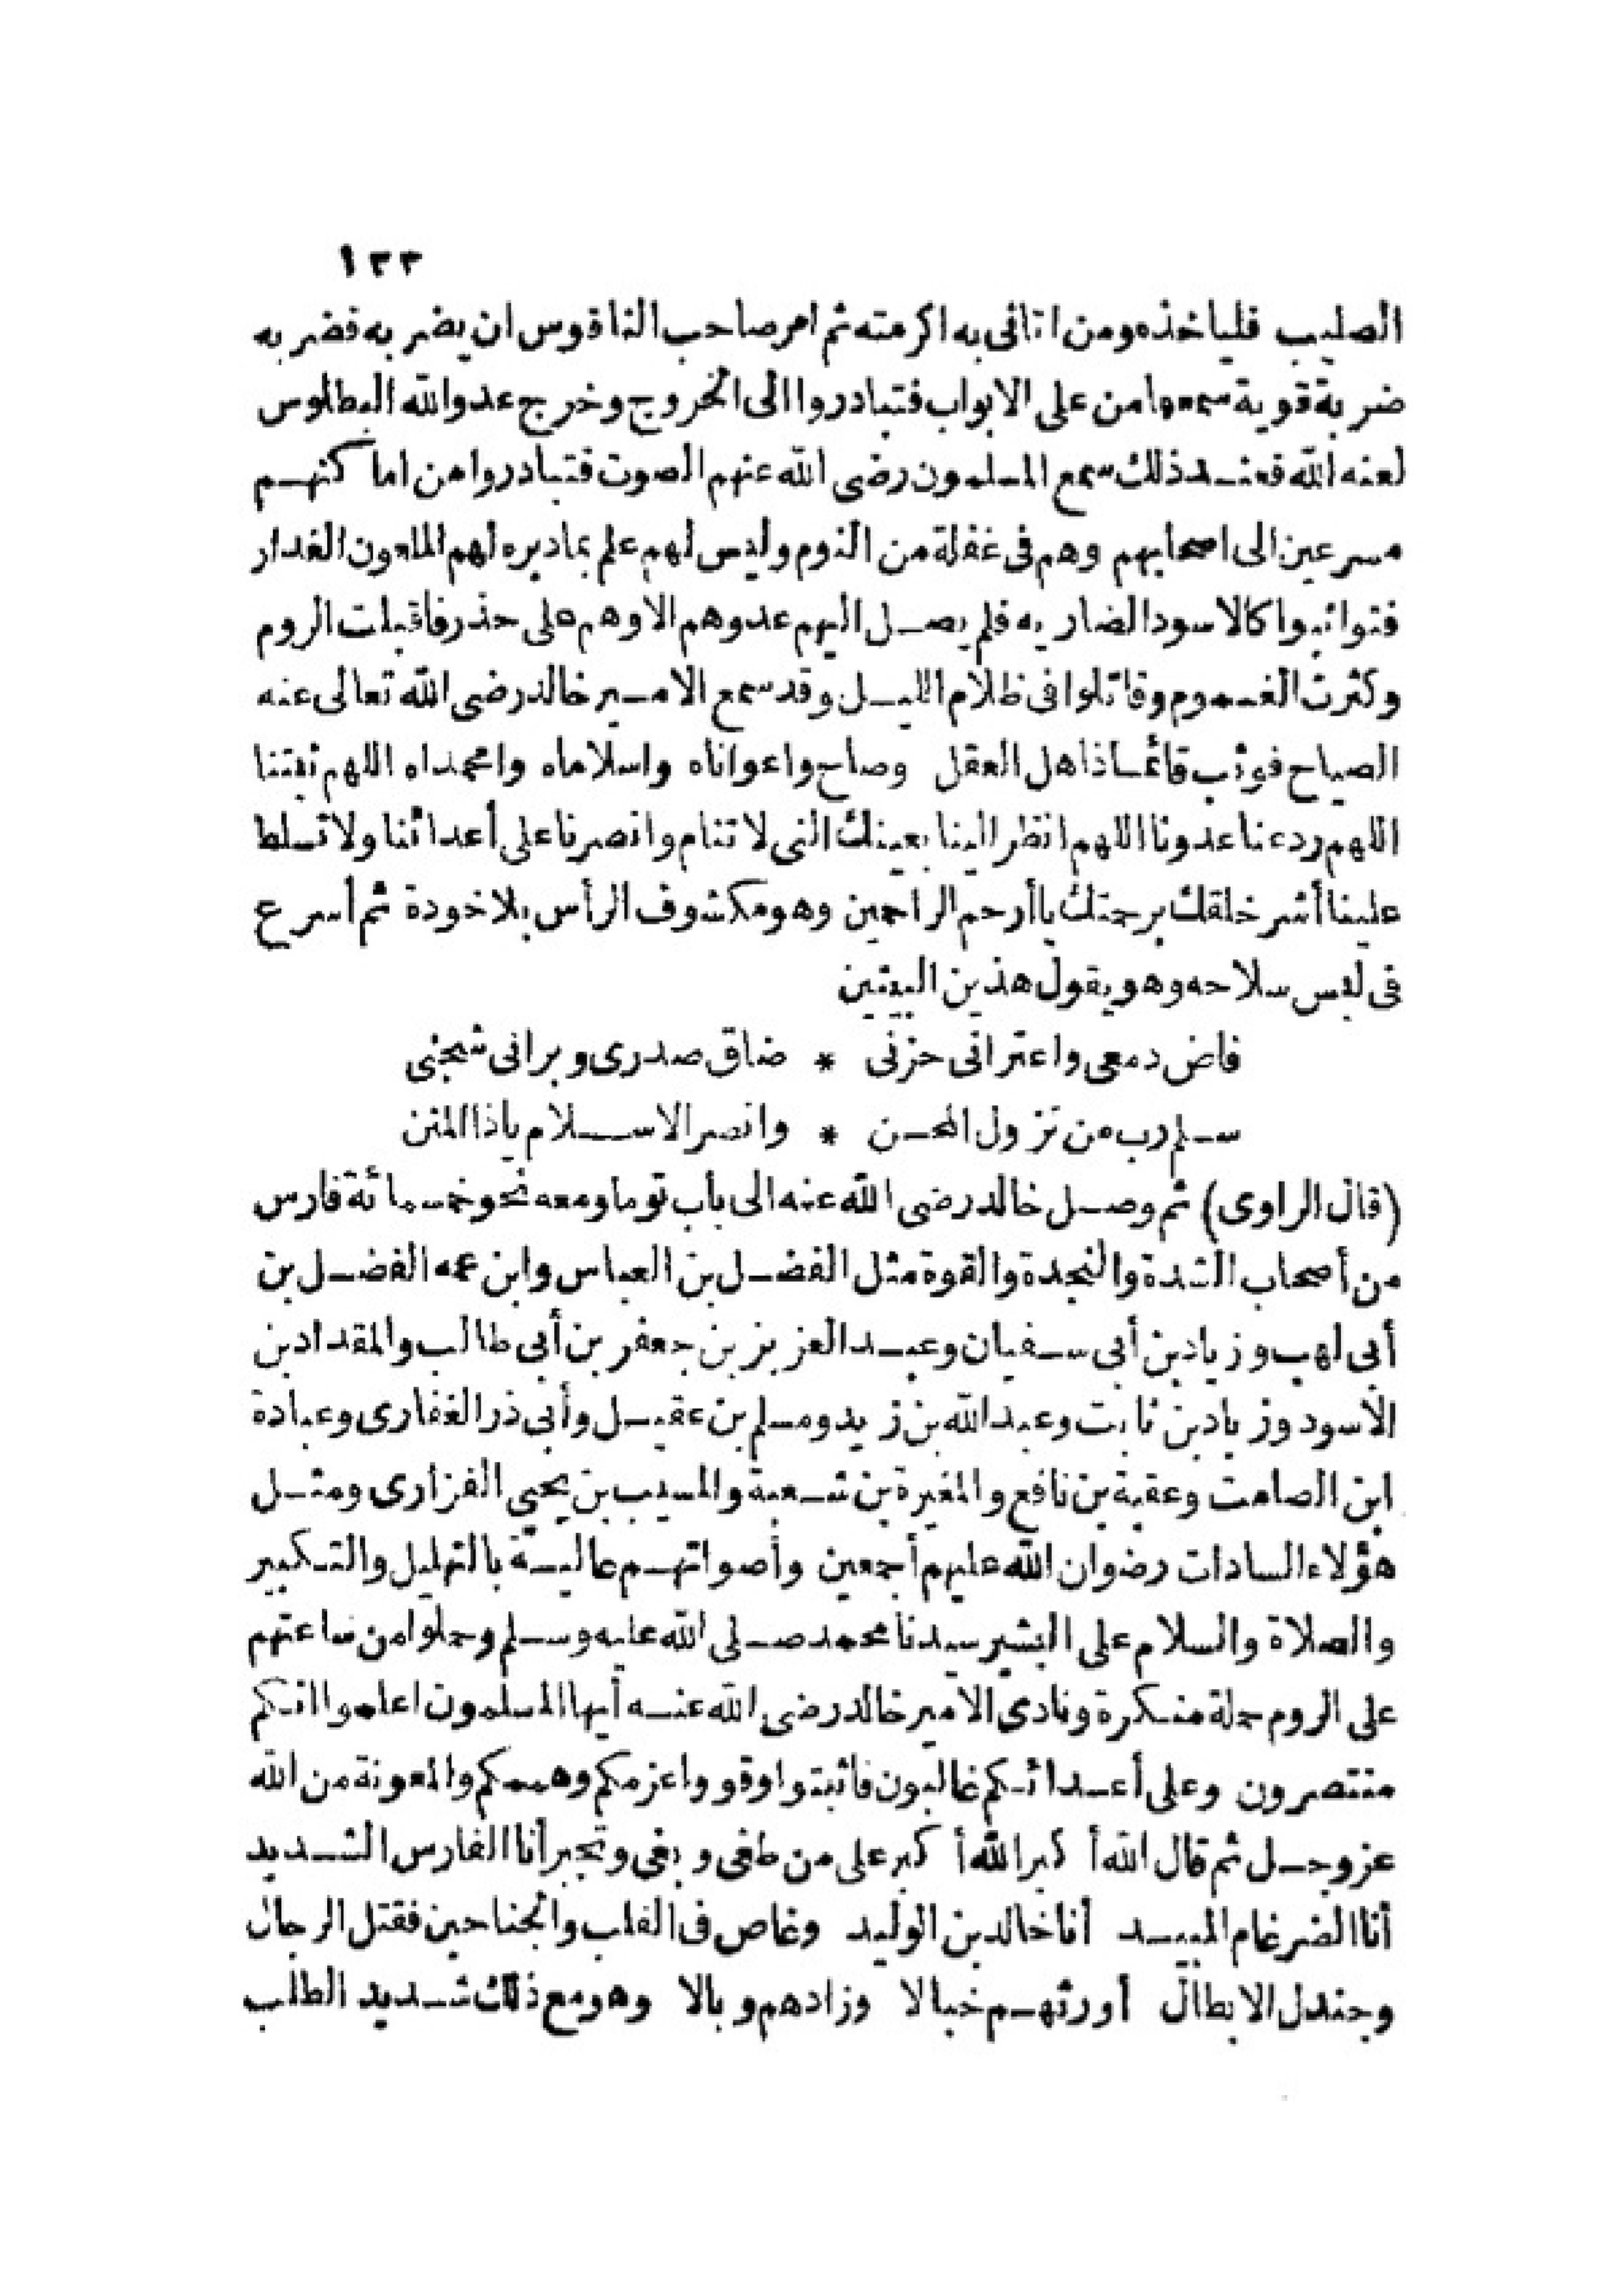 ١٣٣
الصليب فلياخذه ومن اتانى به اكرمته ثم امر صاحب الناقوس ان يضربه فضربه
ضربة قوية سمعها من على الابواب فتبادروا الى الخروج وخرج عدو الله البطلوس
لعنه الله فعند ذلك سمع المسلمون رضى الله عنهم الصوت فتبادروا من اماكنهم
مسرعين الى اصحابهم وهم فى غفلة من النوم وليس لهم علم بما دبره لهم الملعون الغدار
فتواثبوا كالاسود الضاريه فلم يصل اليهم عدوهم الا وهم على حذر فاقبلت الروم
وكثرت الغموم وقاتلوا فى ظلام الليل وقد سمع الامير خالد رضى الله تعالى عنه
الصياح فوثب قائما ذاهل العقل وصاح واعواناه واسلاماه وامحمداه اللهم ثبتنا
اللهم رد عنا عدونا اللهم انظر الينا بعينك التى لا تنام وانصرنا على أعدائنا ولا تسلط
علينا أشر خلقك برحمتك يا أرحم الراحمين وهو مكشوف الرأس بلا خودة ثم أسرع
فى لبس سلاحه وهو يقول هذين البيتين
فاض دمعى واعترانى حزنى * ضاق صدرى وبرانى شجنى
سلم رب من نزول المحن * وانصر الاسلام ياذا المنن
(قال الراوى) ثم وصل خالد رضى الله عنه الى باب توما ومعه نحو خمسمائة فارس
من أصحاب الشدة والنجدة والقوة مثل الفضل بن العباس وابن عمه الفضل بن
أبى لهب وزياد بن أبى سفيان وعبد العزيز بن جعفر بن أبى طالب والمقداد بن
الاسود وزياد بن ثابت وعبد الله بن زيد ومسلم بن عقيل وأبى ذر الغفارى وعبادة
ابن الصامت وعقبة بن نافع والمغيرة بن شعبة والمسيب بن يحيى الفزارى ومثل
هؤلاء السادات رضوان الله عليهم أجمعين وأصواتهم عالية بالتهليل والتكبير
والصلاة والسلام على البشير سيدنا محمد صلى الله عليه وسلم وحملوا من ساعتهم
على الروم حملة منكرة ونادى الامير خالد رضى الله عنه أيها المسلمون اعلموا انكم
منتصرون وعلى أعدائكم غالبون فاثبتوا وقووا عزمكم وهممكم والمعونة من الله
عز وجل ثم قال الله أكبر الله أكبر على من طغى وبغى وتجبر أنا الفارس الشديد
أنا الضرغام المبيد أنا خالد بن الوليد وغاص فى القلب والجناحين فقتل الرجال
وجندل الابطال أورثهم خبالا وزادهم وبالا وهو مع ذلك شديد الطلب